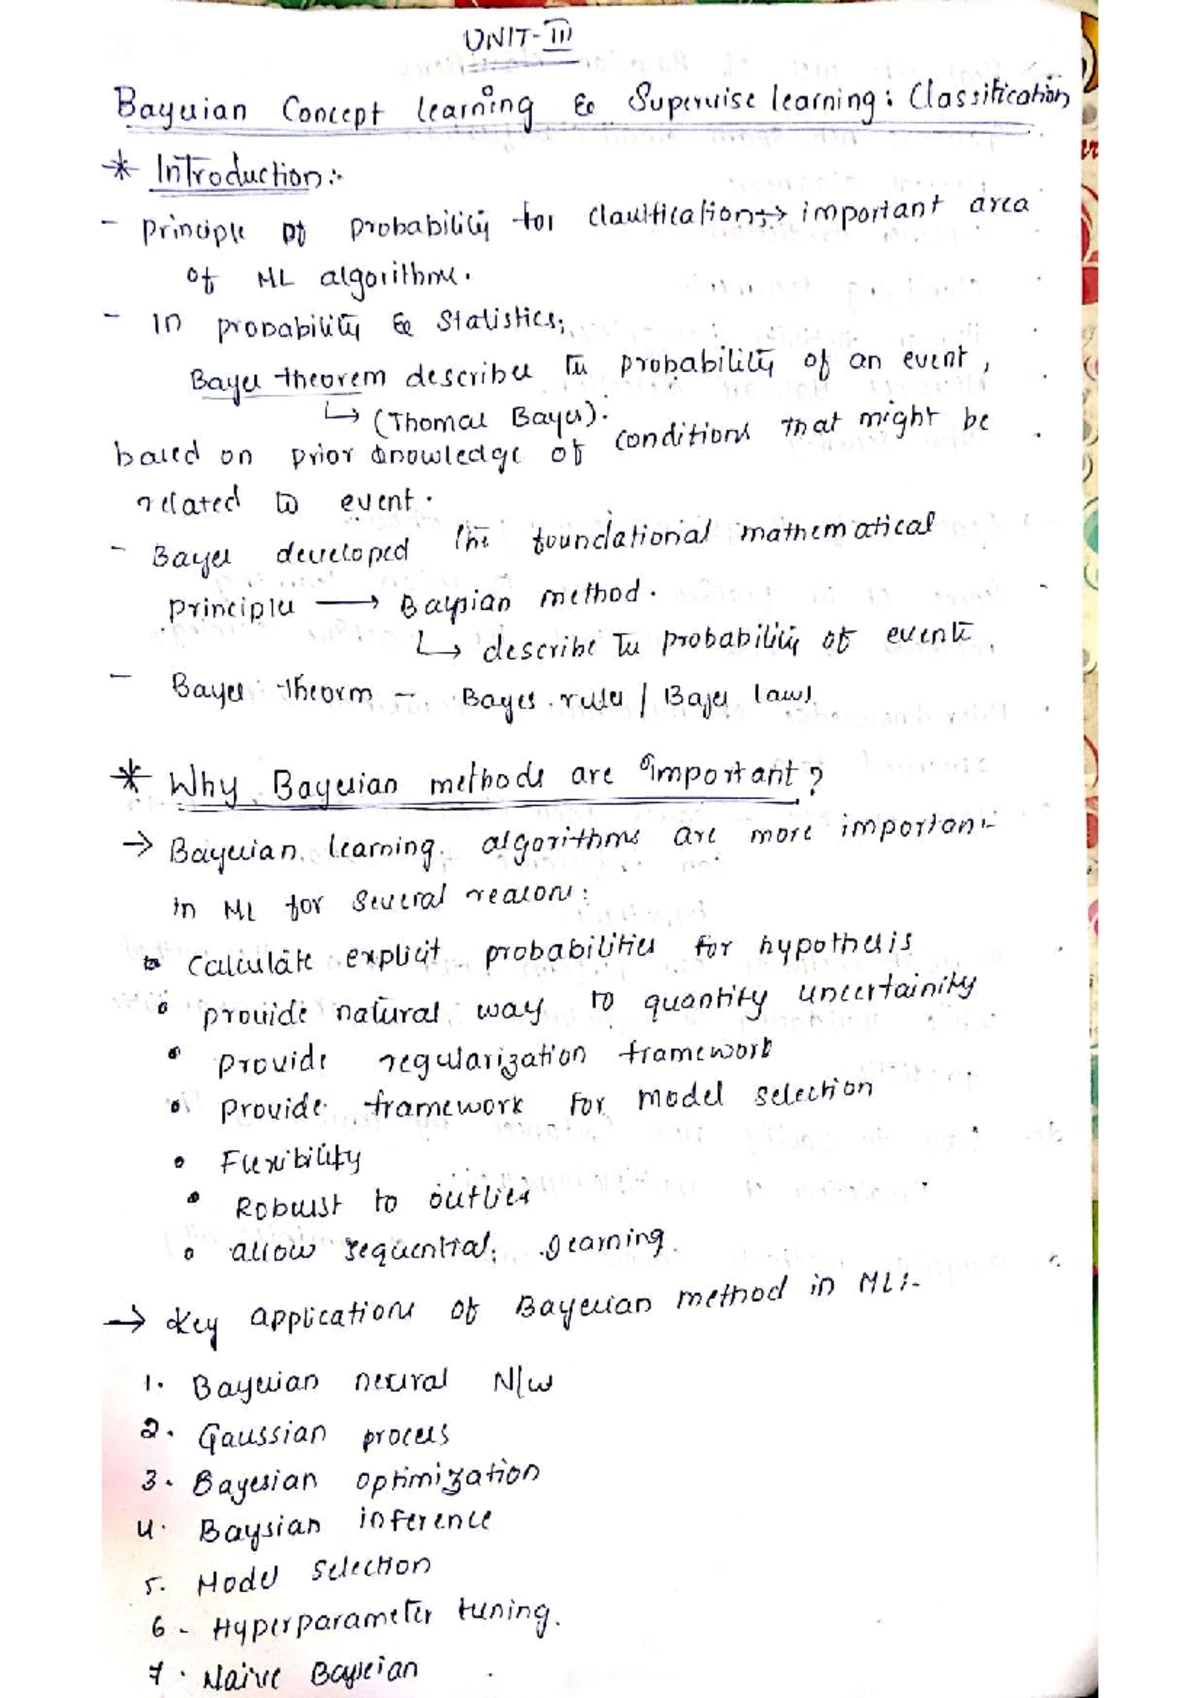 UNIT-III
Bayesian Concept learning & Supervise learning: Classification
* Introduction:-
- Principle of probability for classification:-> important area
of ML algorithms.
- In probability & Statistics,
Bayes theorem describes the probability of an event,
↳ (Thomas Bayes).
based on prior knowledge of conditions that might be
related to event.
- Bayes developed the foundational mathematical
principles ⟶ Baysian method.
↳ describe the probability of events.
- Bayes theorm - Bayes rules / Bayes laws
* Why Bayesian methods are important?
→ Bayesian learning algorithms are more important
in ML for several reasons:
Calculate explicit probabilities for hypothesis
• provide natural way to quantity uncertainity
• Provide regularization framework
• Provide framework for model selection
• Flexibility
• Robust to outlies
• allow sequential learning.
→ Key applications of Bayesian method in ML:-
1. Bayesian neural N/w
2. Gaussian process
3. Bayesian optimization
4. Baysian inference
5. Model selection
6 - Hyperparameter tuning.
7. Naive Baysian